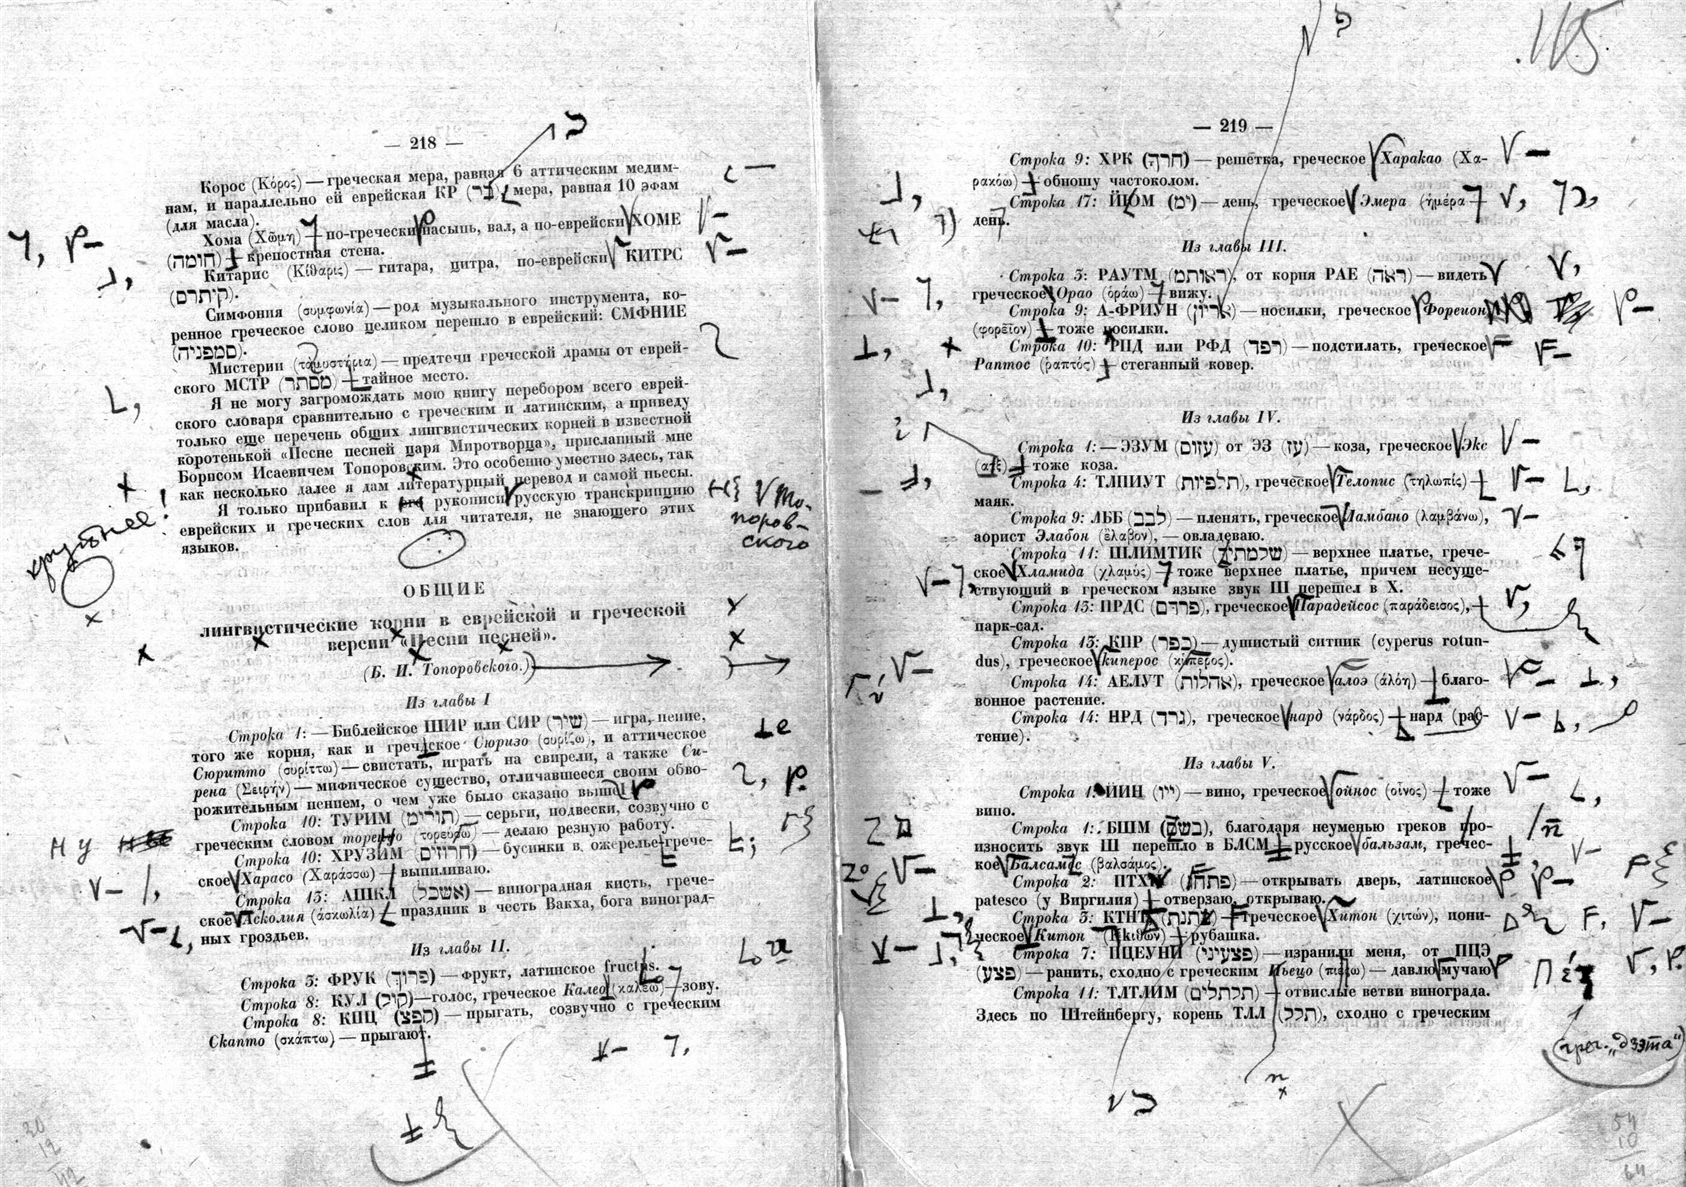 — 218 —
Корос (Κόρος) — греческая мера, равная 6 аттическим медим-
нам, и параллельно ей еврейская КР (כר) мера, равная 10 эфам
(для масла).
Хома (Χῶμη) — по-гречески насыпь, вал, а по-еврейски ХОМЕ
(חומה) — крепостная стена.
Китарис (Κίθαρις) — гитара, цитра, по-еврейски КИТРС
(קיתרס).
Симфония (συμφωνία) — род музыкального инструмента, ко-
ренное греческое слово целиком перешло в еврейский: СМФНИЕ
(סמפניה).
Мистерии — предтечи греческой драмы от еврей-
ского МСТР (מסתר) — тайное место.
Я не могу загромождать мою книгу перебором всего еврей-
ского словаря сравнительно с греческим и латинским, а приведу
только еще перечень общих лингвистических корней в известной
коротенькой «Песне песней царя Миротворца», присланный мне
Борисом Исаевичем Топоровским. Это особенно уместно здесь, так
как несколько далее я дам литературный перевод и самой пьесы.
Я только прибавил к его рукописи русскую транскрипцию
еврейских и греческих слов для читателя, не знающего этих
языков.
Топоровского
крупнее!
ОБЩИЕ
лингвистические корни в еврейской и греческой
версии «Песни песней».
(Б. И. Топоровского.)
Из главы I
Строка 1: — Библейское ШИР или СИР (שיר) — игра, пение,
того же корня, как и греческое Сюризо (συρίζω), и аттическое
Сюритто (συρίττω) — свистать, играть на свирели, а также Си-
рена (Σειρήν) — мифическое существо, отличавшееся своим обво-
рожительным пением, о чем уже было сказано выше.
Строка 10: ТУРИМ (תורים) — серьги, подвески, созвучно с
греческим словом (τορεύω) — делаю резную работу.
Строка 10: ХРУЗИМ (חרוזים) — бусинки в ожерелье, грече-
ское Харасо (Χαράσσω) — выпиливаю.
Строка 13: АШКЛ (אשכל) — виноградная кисть, грече-
ское Асколия (ἀσκωλία) — праздник в честь Вакха, бога виноград-
ных гроздьев.
Из главы II.
Строка 3: ФРУК (פרוך) — фрукт, латинское fructus.
Строка 8: КУЛ (קול) — голос, греческое Калео (καλέω) — зову.
Строка 8: КПЦ (קפצ) — прыгать, созвучно с греческим
Скапто (σκάπτω) — прыгают.
115
— 219 —
Строка 9: ХРК (חרך) — решетка, греческое Харакао (Χα-
ρακόω) — обношу частоколом.
Строка 17: ЙОМ (ימ) — день, греческое Эмера (ἡμέρα —
день.
Из главы III.
Строка 3: РАУТМ (ראותמ), от корня РАЕ (ראה) — видеть
греческое Орао (ὁράω) — вижу.
Строка 9: А-ФРИУН — носилки, греческое Фореион
(φορεῖον) — тоже носилки.
Строка 10: РПД или РФД (רפד) — подстилать, греческое
Раптос (ῥαπτός) — стеганный ковер.
Из главы IV.
Строка 1: — ЭЗУМ (עזום) от ЭЗ (עז) — коза, греческое Экс
(αἴξ) — тоже коза.
Строка 4: ТЛПИУТ (תלפיות), греческое Телопис (τηλωπίς) —
маяк.
Строка 9: ЛББ (לבב) — пленять, греческое Ламбано (λαμβάνω),
аорист Элабон (ἔλαβον), — овладеваю.
Строка 11: ШЛИМТИК — верхнее платье, грече-
ское Хламида (χλαμύς) — тоже верхнее платье, причем несуще-
ствующий в греческом языке звук Ш перешел в Х.
Строка 13: ПРДС (פרדס), греческое Парадейсос (παράδεισος), —
парк-сад.
Строка 13: КПР (כפר) — душистый ситник (cyperus rotun-
dus), греческое киперос (κύπερος).
Строка 14: АЕЛУТ (אהלות), греческое алоэ (ἀλόη) — благо-
вонное растение.
Строка 14: НРД (נרד), греческое нард (νάρδος) — нард (рас-
тение).
Из главы V.
Строка 1: ЙИН (יין) — вино, греческое ойнос (οἶνος) — тоже
вино.
Строка 1: БШМ (בשם), благодаря неуменью греков про-
износить звук Ш перешло в БЛСМ — русское бальзам, гречес-
кое Балсамос (βαλσάμος).
Строка 2: ПТХ — открывать дверь, латинское
patesco (у Виргилия) — отверзаю, открываю.
Строка 3: КТНТ греческое Хитон (χιτών), иони-
ческое Китон — рубашка.
Строка 7: ПЦЕУНИ (פצעוני) — изранили меня, от ПЦЭ
(פצע) — ранить, сходно с греческим Пьецо — давлю мучаю
Строка 11: ТЛТЛИМ (תלתלים) — отвислые ветви винограда.
Здесь по Штейнбергу, корень ТЛЛ (תלל), сходно с греческим
греч. „дзэта“